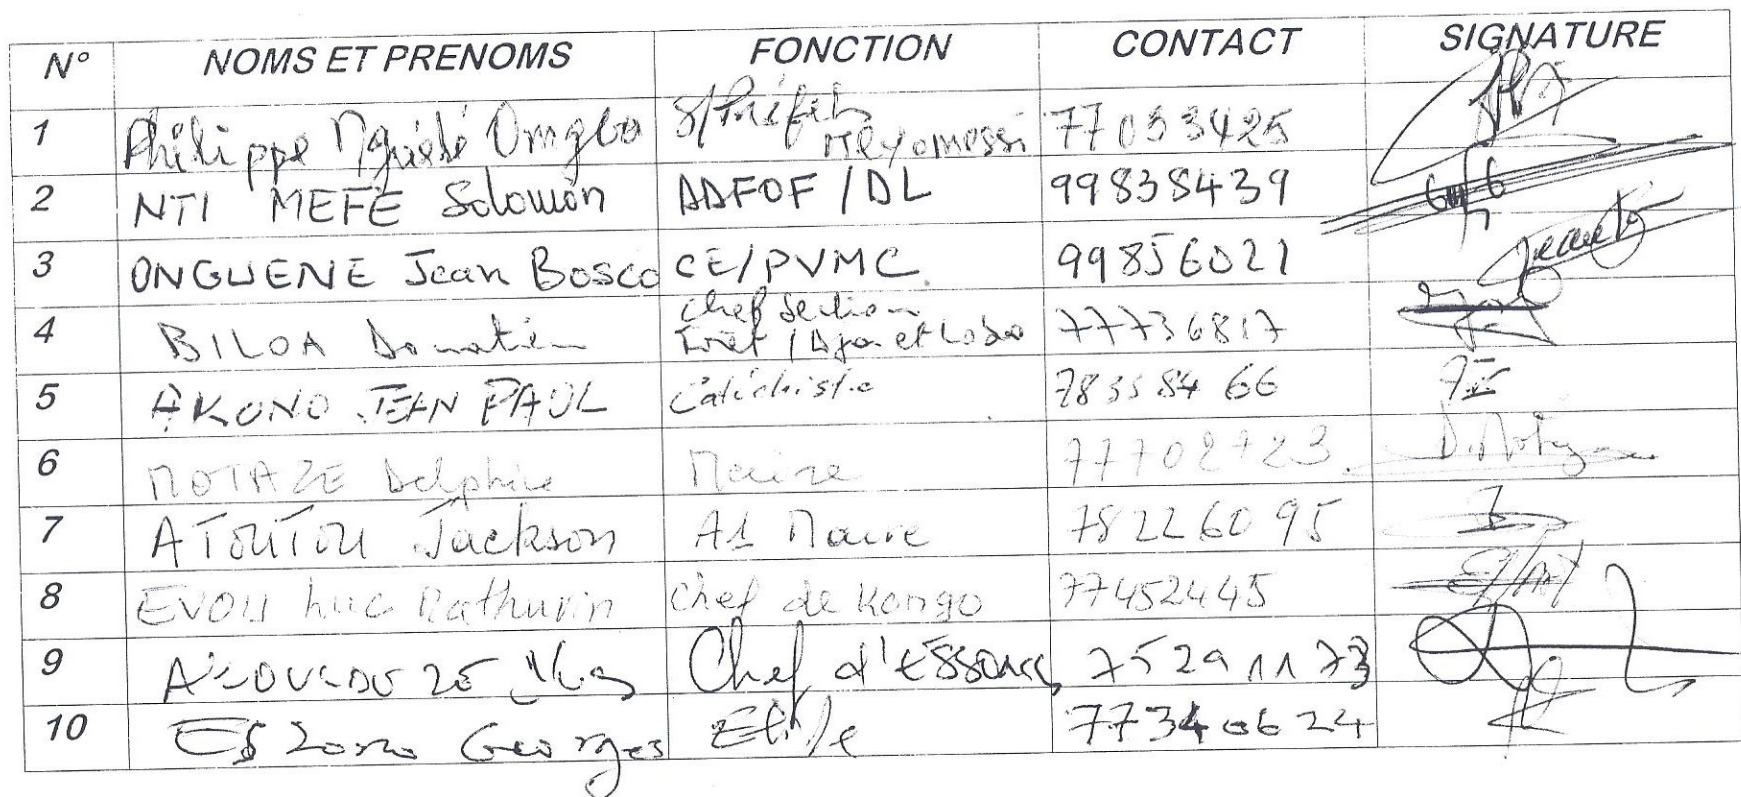 N° NOMS ET PRENOMS FONCTION CONTACT SIGNATURE
1 Philippe Nguélé Omgba S/Préfet Meyomessi 77053425
2 NTI MEFE Solomon DDFOF / DL 99838439
3 ONGUENE Jean Bosco CE/PVMC 99856021
4 BILOA Donatien Chef Section Forêt / Dja et Lobo 77736817
5 AKONO JEAN PAUL Catéchiste 78358466
6 MOTAZE Delphine Maire 77702723
7 ATOUTOU Jackson A1 Maire 78226095
8 EVOU Luc Mathurin Chef de Kongo 77452445
9 ZE Chef d' 75291173
10 Georges Elite 77340624